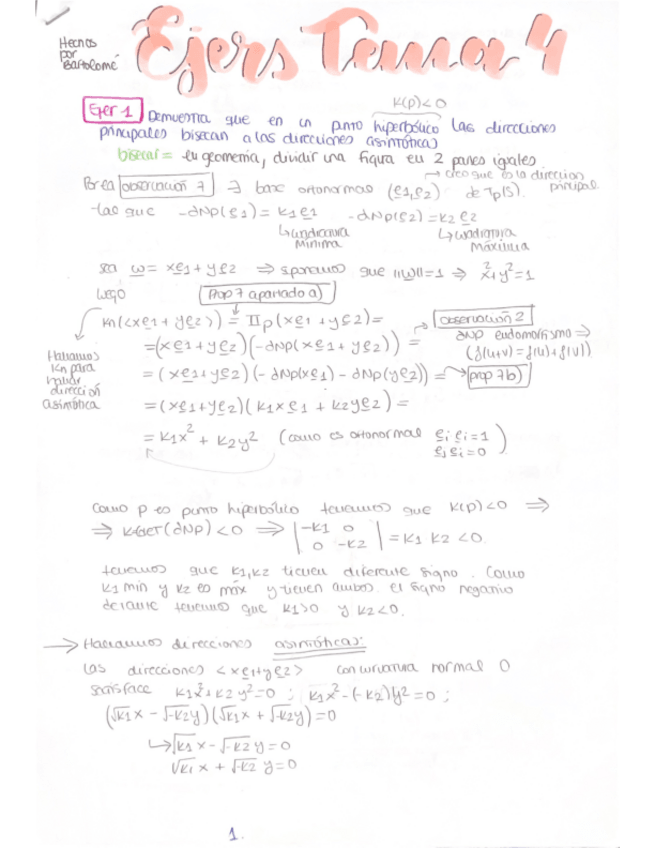 Hechos
por
Bartolomé
Ejers Tema 4
K(p)<0
Ejer 1 Demuestra que en un punto hiperbólico las direcciones
principales bisecan a las direcciones asintóticas
bisecar = en geometría, dividir una figura en 2 partes iguales
→ creo que es la dirección principal.
Por la observación 7 ∃ base ortonormal (e1,e2) de Tp(S).
tal que -dNp(e1) = k1e1 -dNp(e2) = k2 e2
↳ curvatura mínima
↳ curvatura máxima
sea w = xe1 + ye2 ⇒ suponemos que ||w||=1 ⇒ x²+y²=1
luego Prop 7 apartado a)
kn(<xe1 + ye2>) = IIp(xe1 + ye2) =
observación 2
= (xe1 + ye2)(-dNp(xe1 + ye2)) =
dNp endomorfismo ⇒
(f(u+v) = f(u) + f(v))
Hallamos
kn para
hallar
dirección
asintótica
= (xe1 + ye2)(-dNp(xe1) - dNp(ye2)) = → prop 7b)
= (xe1 + ye2)(k1xe1 + k2ye2) =
= k1x² + k2y² (como es ortonormal ei ei = 1
ej ei = 0)
Como p es punto hiperbólico tenemos que K(p)<0 ⇒
⇒ K=det(dNp) <0 ⇒ | -k1 0
0 -k2 | = k1 k2 <0.
tenemos que k1,k2 tienen diferente signo. Como
k1 min y k2 es máx y tienen ambos el signo negativo
delante tenemos que k1>0 y k2<0.
→ Hallamos direcciones asintóticas:
las direcciones <xe1+ye2> con curvatura normal 0
satisface k1x²+k2y²=0 ; k1x²-(-k2)y²=0 ;
(√k1 x - √-k2 y)(√k1 x + √-k2 y) = 0
↳ √k1 x - √-k2 y = 0
√k1 x + √-k2 y = 0
1.